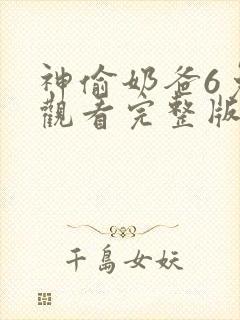 神偷奶爸6免
觀看完整版
千島女妖